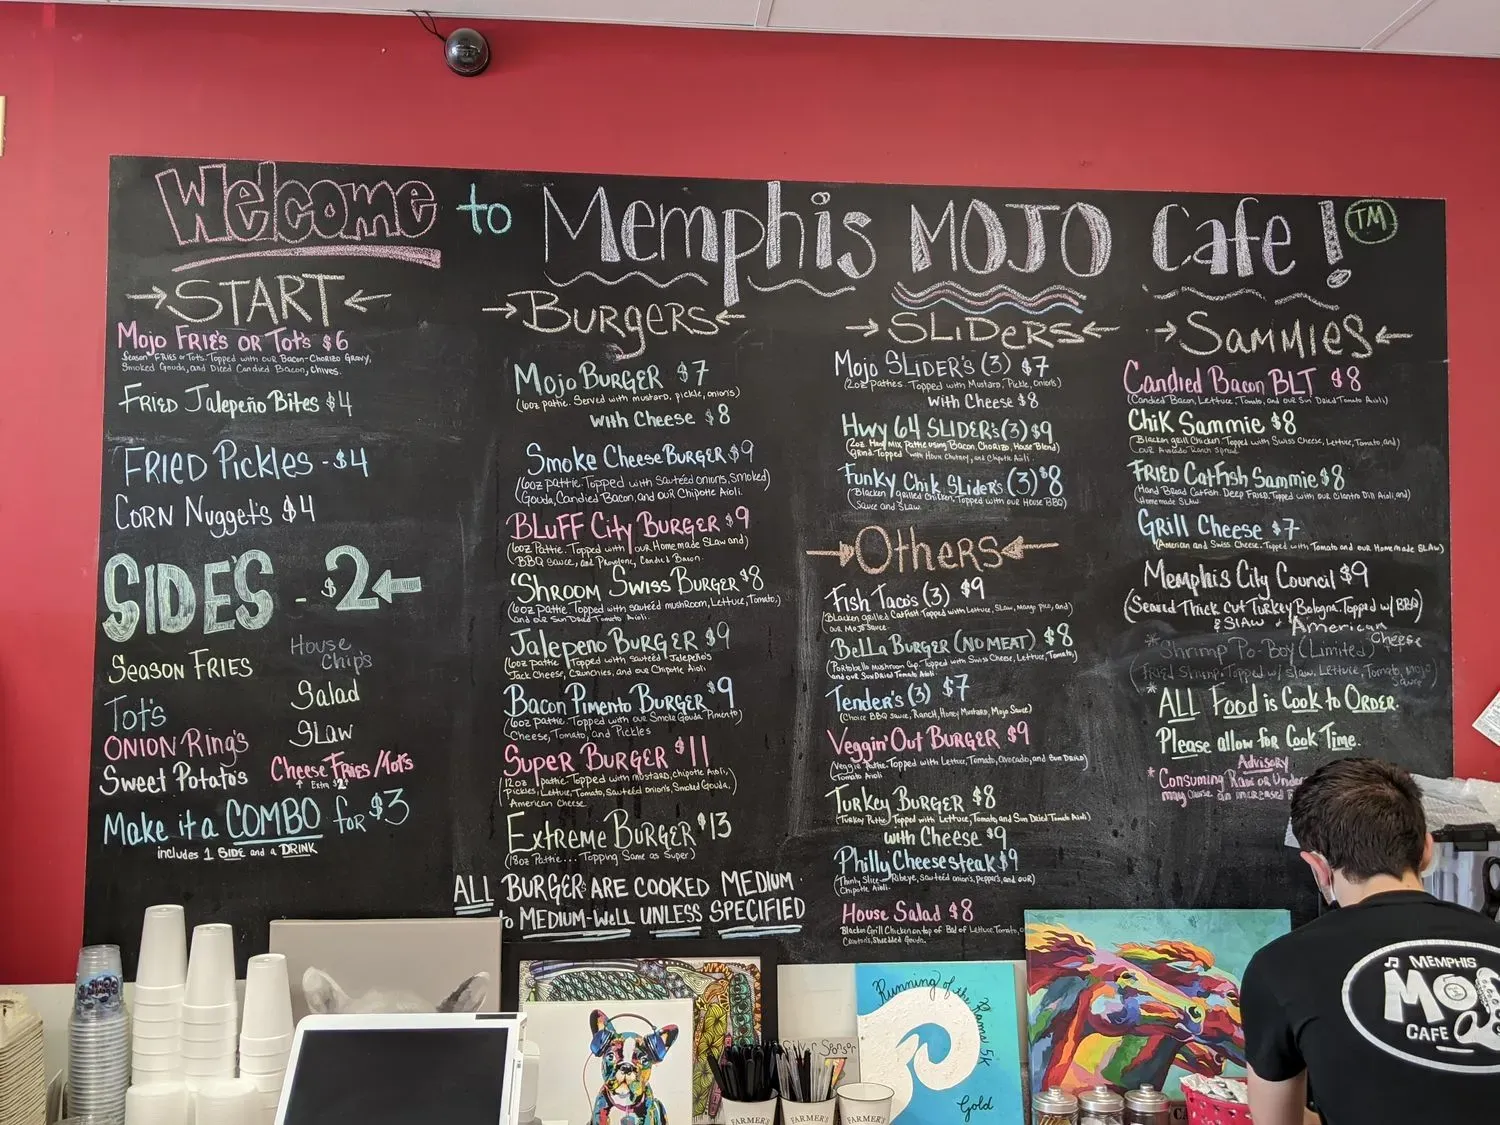 Welcome to Memphis MOJO Cafe! TM
START
Mojo FRIE'S OR Tot's $6
Season FRIES or Tots. Topped with our Bacon-Chorizo Gravy,
Smoked Gouda, and Diced Candied Bacon, chives.
FRIED Jalepeño Bites $4
FRIED Pickles - $4
CORN Nugget's $4
SIDE'S - $2
SEASON FRIES
House
Chip's
Tot's
Salad
SLAW
ONION Ring's
Sweet Potato's
Cheese FRIES/Tot's
Extra $2
Make it a COMBO for $3
includes 1 SIDE and a DRINK
BURGERS
Mojo BURGER $7
(6oz pattie. Served with mustard, pickle, onions)
with Cheese $8
Smoke Cheese BURGER $9
(6oz pattie. Topped with sautéed onions, Smoked)
Gouda, Candied Bacon, and our Chipotle Aioli.
BLUFF City BURGER $9
(6oz Pattie. Topped with our Homemade Slaw and)
BBQ Sauce, and Provolone, Candied Bacon
'SHROOM SWISS BURGER $8
(6oz Pattie. Topped with sautéed mushroom, Lettuce, Tomato,)
and our Sun Dried Tomato Aioli.
Jalepeno BURGER $9
(6oz Pattie Topped with sautéed Jalepeño's
Jack Cheese, Crunchies, and our Chipotle Aioli
Bacon Pimento BURGER $9
(6oz Pattie. Topped with our Smoke Gouda Pimento)
Cheese, Tomato, and Pickles
Super BURGER $11
(12oz pattie Topped with mustard, chipotle Aioli,
Pickles, Lettuce, Tomato, Sautéed onion's, Smoked Gouda,
American Cheese
EXTREME BURGER $13
(18oz Pattie.... Topping Same as Super)
ALL BURGERS ARE COOKED MEDIUM
to MEDIUM-WELL UNLESS SPECIFIED
SLIDERS
Mojo SLIDER'S (3) $7
(2oz patties. Topped with Mustard, Pickle, Onions)
with Cheese $8
Hwy 64 SLIDER'S (3) $9
(2oz. Mix Pattie using Bacon Chorizo, House Blend)
Grind. Topped with Chutney, and Chipotle Aioli.
Funky Chik SLider's (3) $8
(Blacken grilled Chicken, Topped with our House BBQ)
Sauce and Slaw.
Others
Fish Taco's (3) $9
(Blacken grilled Catfish Topped with Lettuce, Slaw, mango pico, and)
our Mojo Sauce.
Bella BURGER (NO MEAT) $8
(Portobello mushroom Cap. Topped with Swiss Cheese, Lettuce, Tomato,)
and our SunDried Tomato Aioli
Tender's (3) $7
(Choice BBQ sauce, Ranch, Honey Mustard, Mojo Sauce)
Veggin' Out BURGER $9
(Veggie Pattie. Topped with Lettuce, Tomato, Avocado, and Sun DRIED)
(Tomato Aioli
TURKEY BURGER $8
(Turkey Pattie Topped with Lettuce, Tomato, and Sun Dried Tomato Aioli)
with Cheese $9
Philly Cheesesteak $9
(Thinly Slice Ribeye, Sautéed onion's, Pepper's, and our)
Chipotle Aioli.
House Salad $8
Blacken Grill Chicken on top of Bed of Lettuce, Tomato,
Crouton's, Shredded Gouda.
SAMMIES
Candied Bacon BLT $8
(Candied Bacon, Lettuce, Tomato, and our Sun Dried Tomato Aioli)
Chik Sammie $8
(Blacken grill Chicken Topped with Swiss Cheese, Lettuce, Tomato, and)
our Avocado Ranch Spread
FRIED CatFish Sammie $8
Hand Bread Catfish. Deep FRIED. Topped with our Cilantro Dill Aioli, and
Homemade SLAW.
GRILL Cheese $7
(American and Swiss Cheese. Topped with Tomato and our Homemade SLAW)
Memphis City Council $9
(Seared Thick Cut Turkey Bologna. Topped w/ BBQ)
& SLAW + American
Cheese
*Shrimp Po-Boy (Limited)
(FRIED Shrimp. Topped w/ slaw, Lettuce, Tomato, Mojo)
Sauce
*ALL Food is Cook to ORDER.
Please allow for Cook Time.
Advisory
*Consuming Raw or Under
may cause an increased
MEMPHIS
MO
CAFE
Running of the Rams 5K
Gold
Silver Sponsor
FARMER'S
FARMER'S
FARMER'S